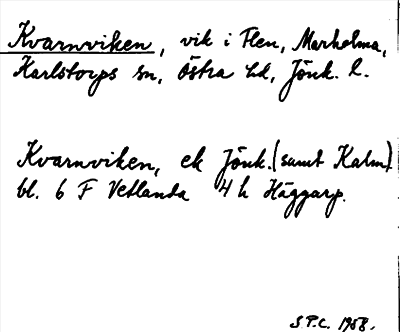 Kvarnviken, vik i Flen, Marhelma,
Karlstorps sn, Östra hd, Jönk. l.
Kvarnviken, ek Jönk. (samt Kalm)
bl. 6 F Vetlanda 4 h Häggarp.
S.P.C. 1958.